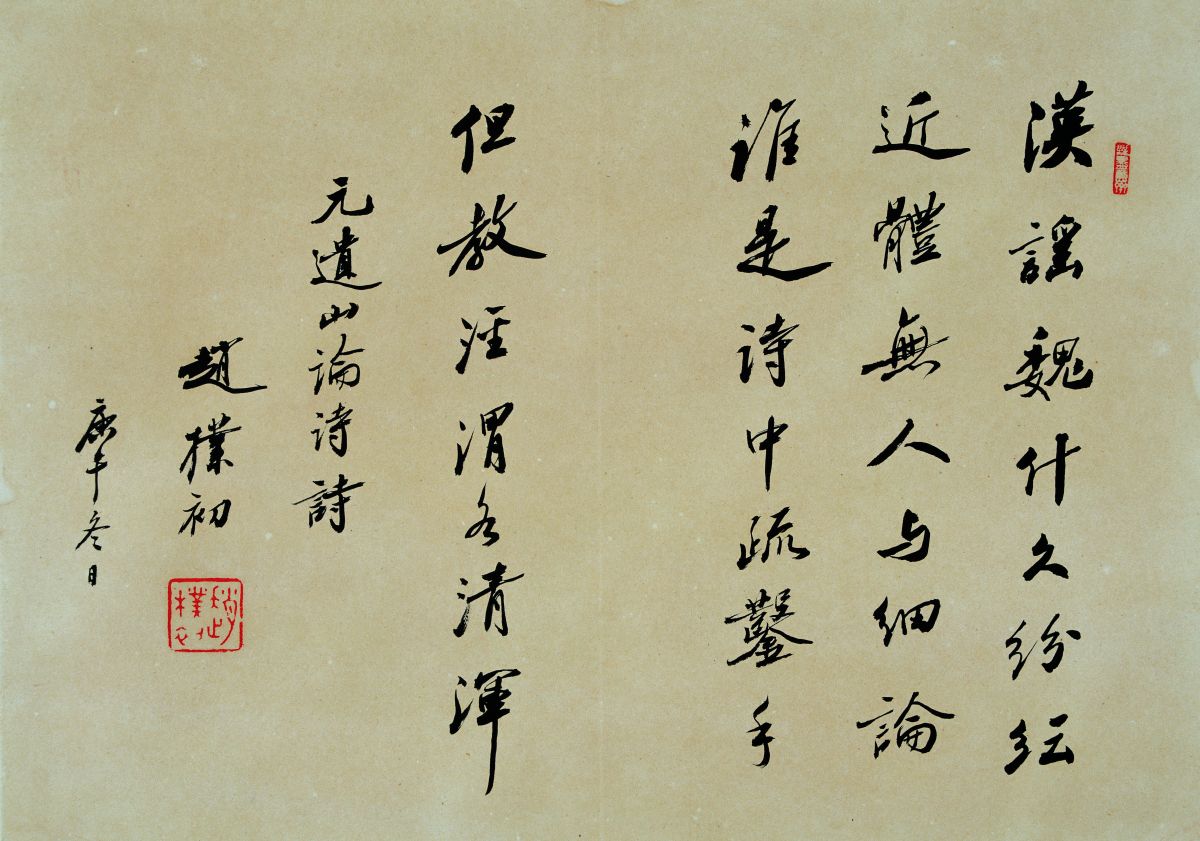 漢謠魏什久紛紜
近體無人与細論
誰是诗中疏鑿手
但教涇渭各清渾
元遺山論诗詩
趙樸初
庚午冬日
趙樸初